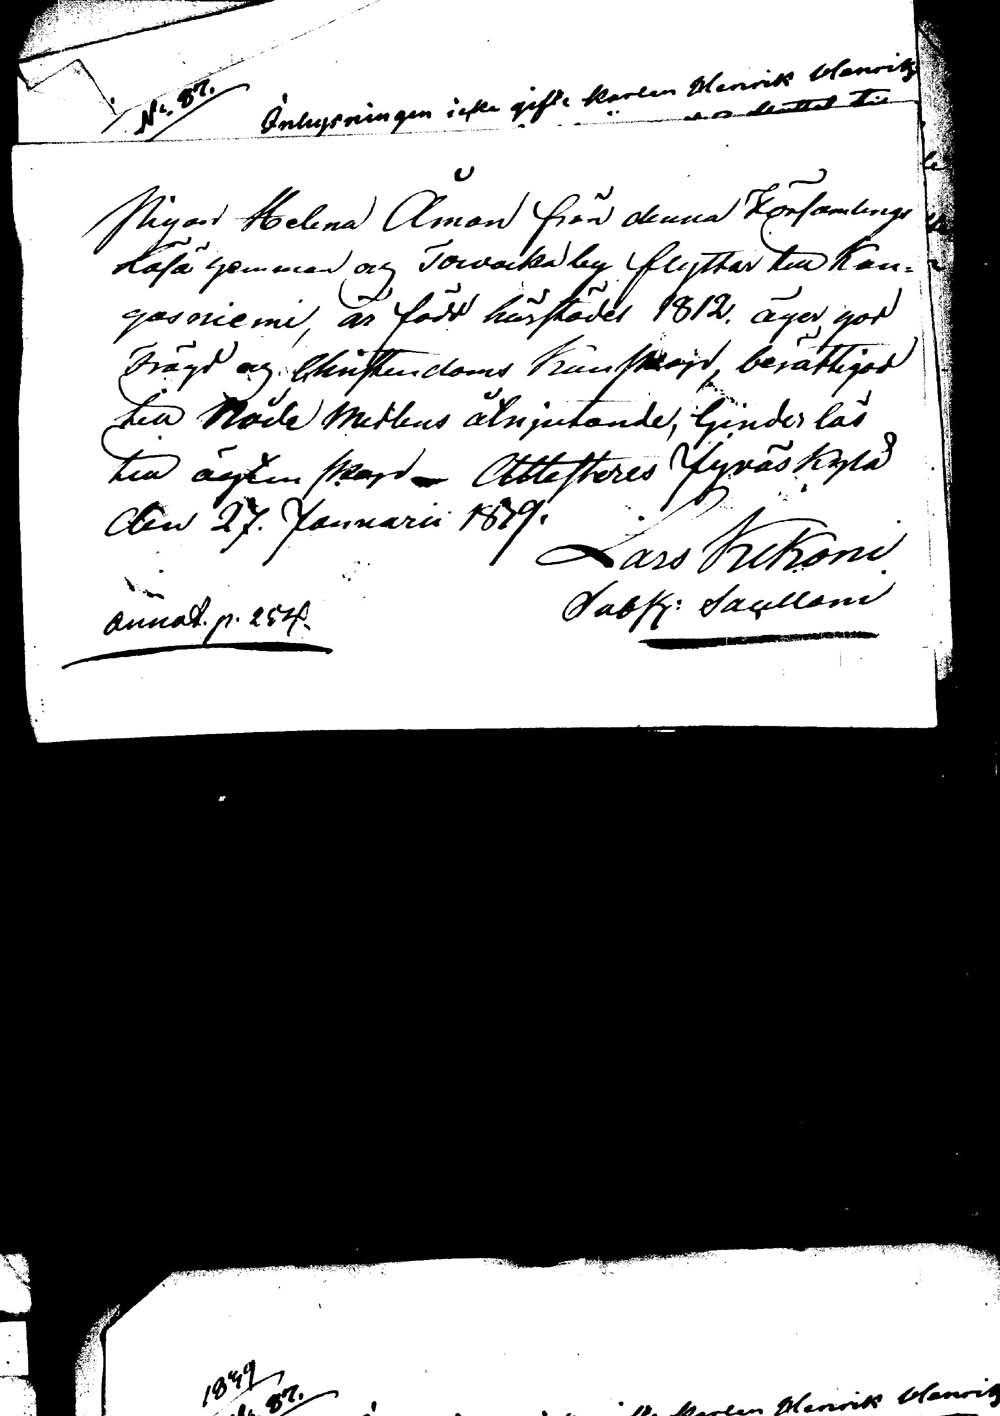 No. 87.
Inhysningen icke gifte Karlen Henrik Henriks
Pigan Helena Åman från denna Församlings
och by flyttar till Kan-
gasniemi, är född härstädes 1812. äger god
Frägd och Christendoms Kunskap, berättigad
till Nåde Medlens åtnjutande, hinderlös
till ägtenskap – Attesteres Jyväskylä
den 27. Januarii 1849.
Lars Kukoni
annot. p. 254.
1849
87.
Karlen Henrik Henriks